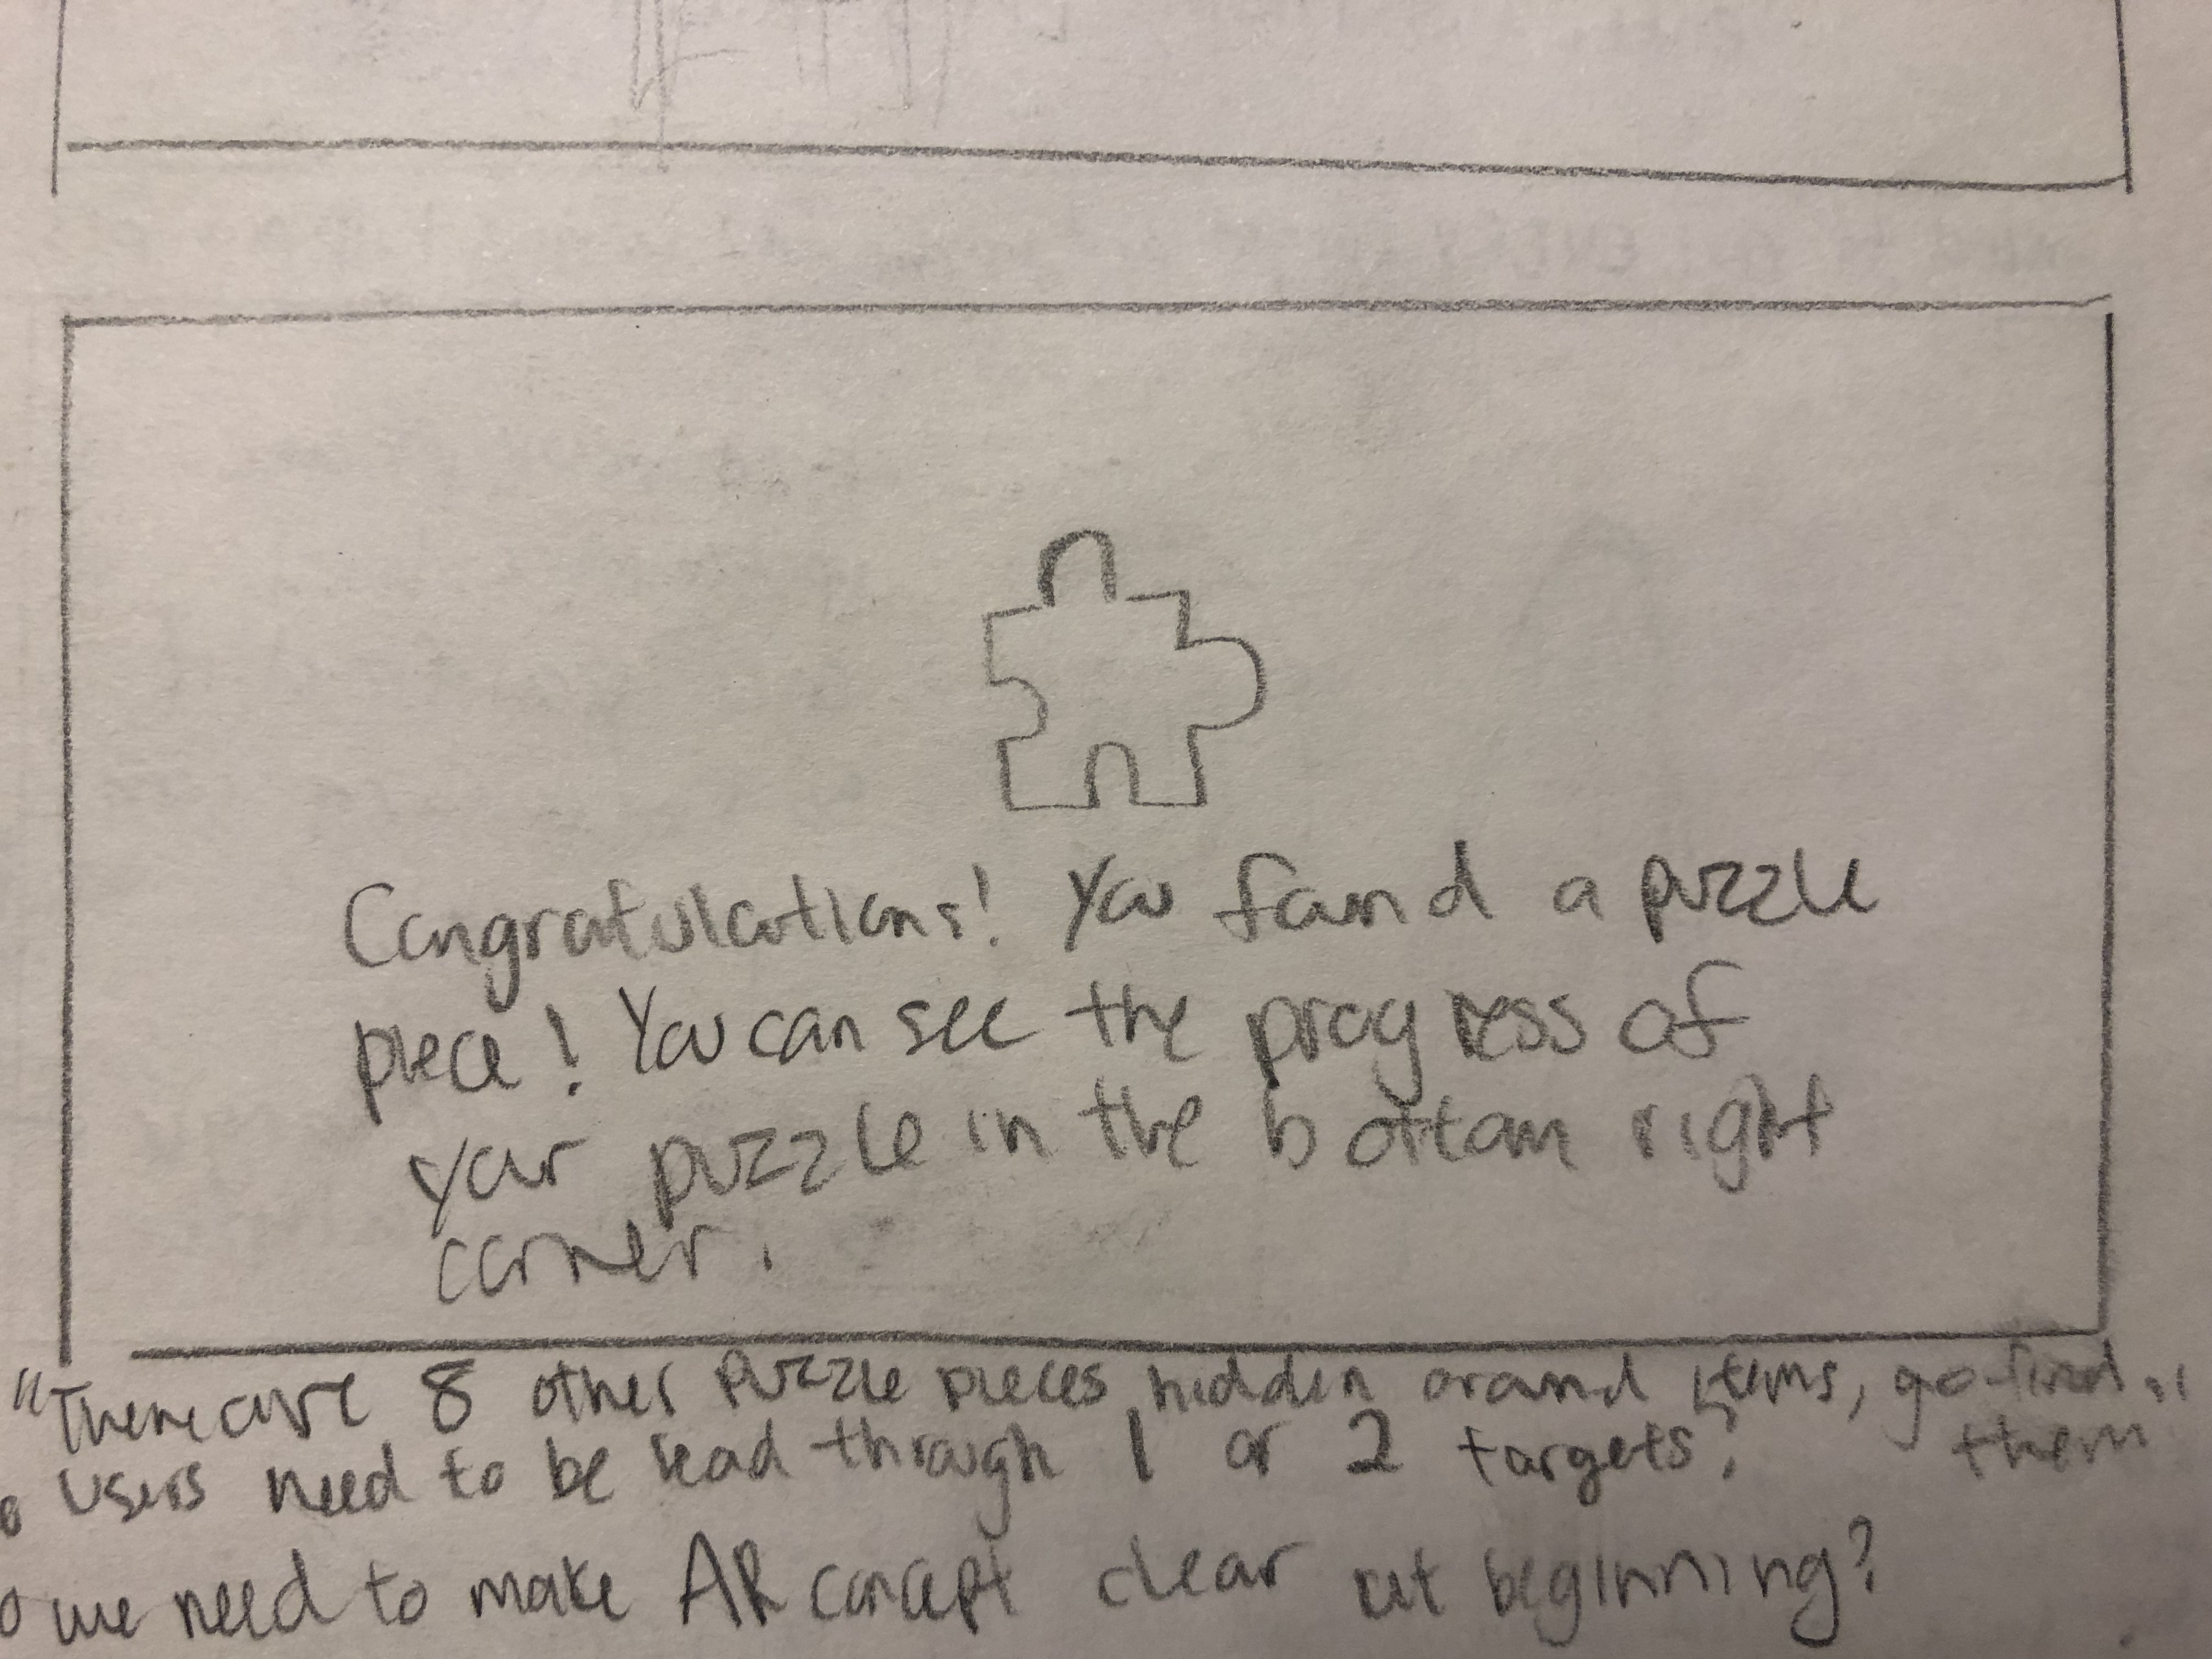 Congratulations! You found a puzzle
piece! You can see the progress of
your puzzle in the bottom right
corner.
"There are 8 other puzzle pieces hidden around items, go find
them"
Users need to be lead through 1 or 2 targets?
we need to make AR concept clear at beginning?